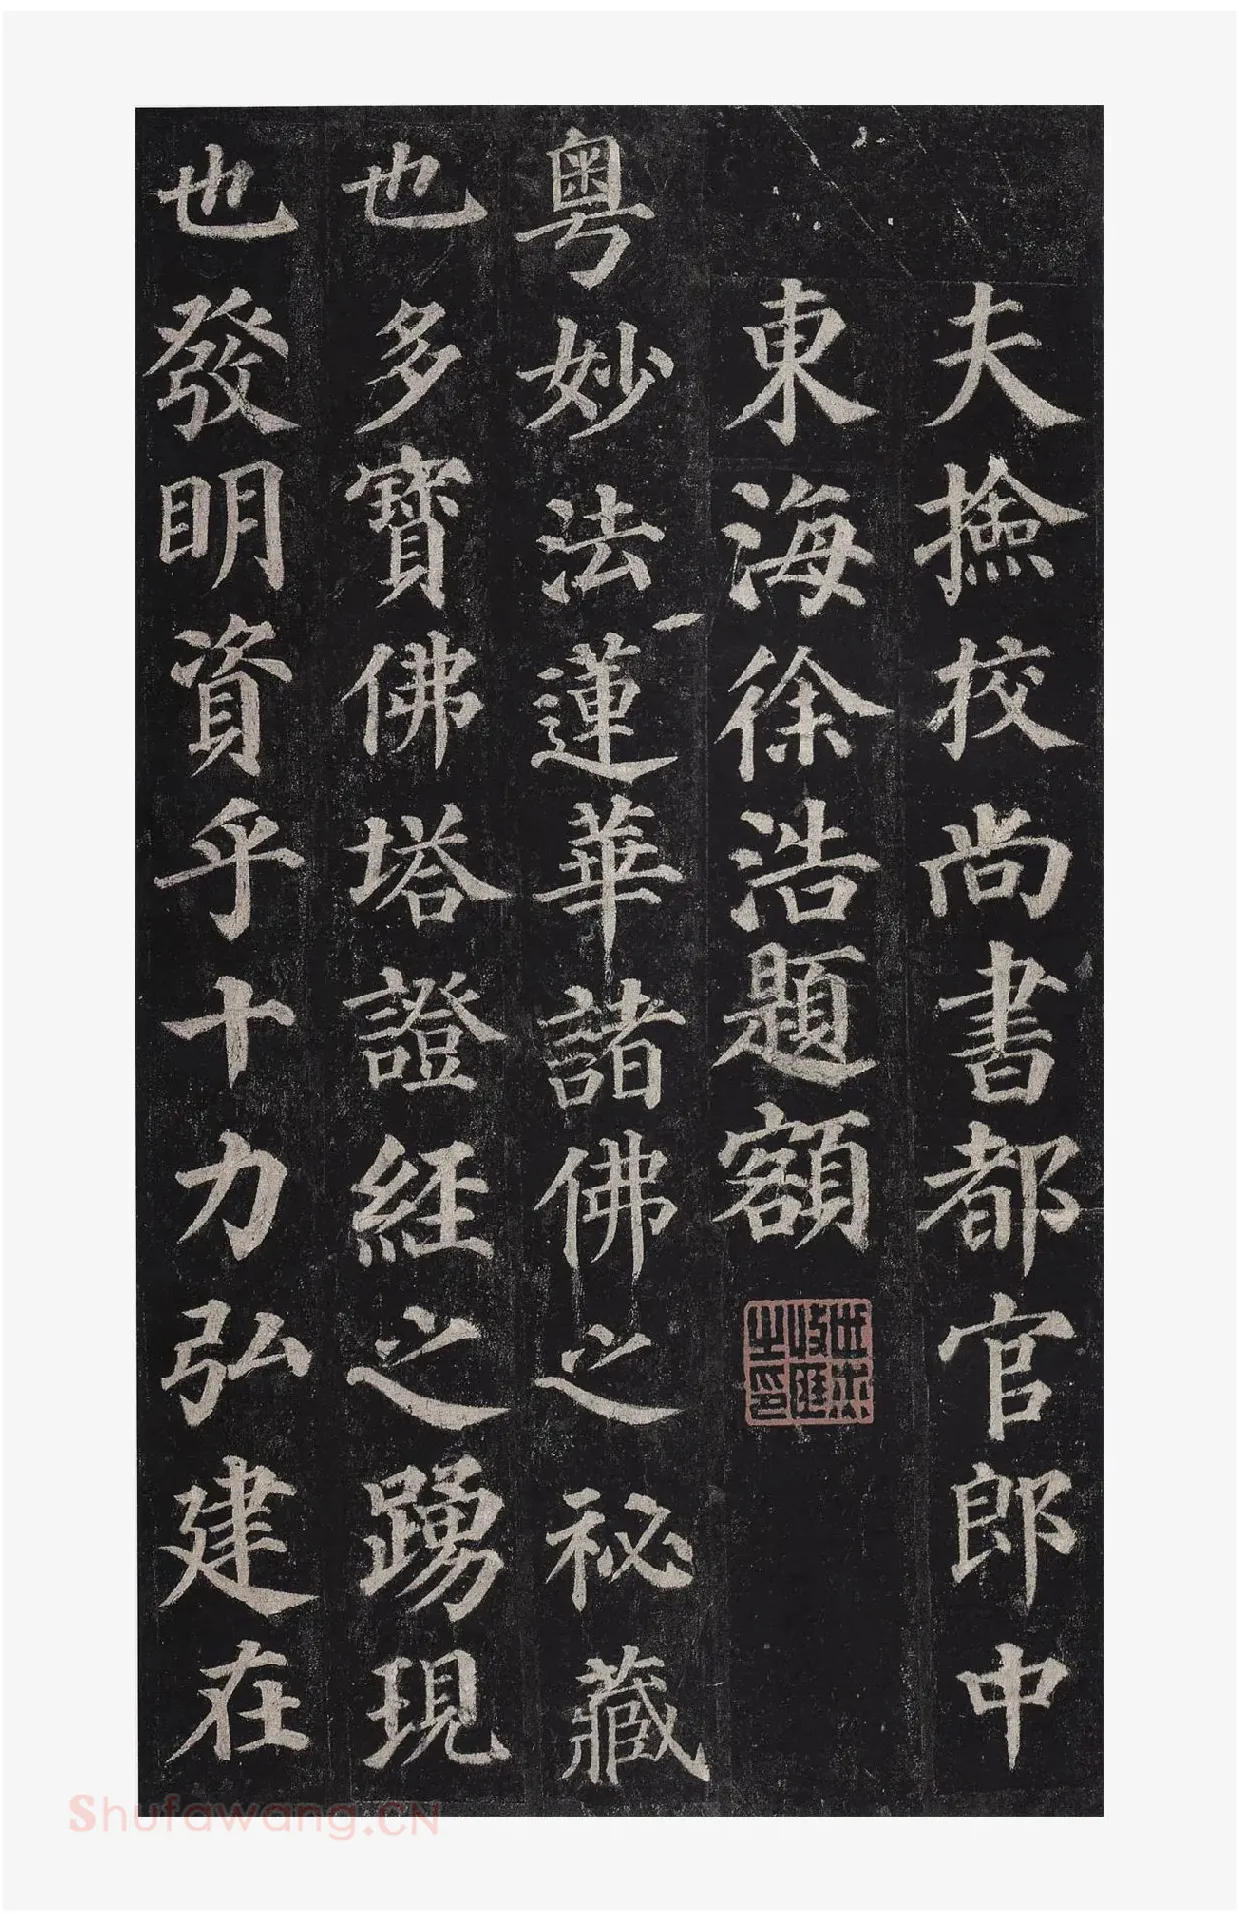 夫撿挍尚書都官郎中
東海徐浩題額
粵妙法蓮華諸佛之祕藏
也多寶佛塔證經之踴現
也發明資乎十力弘建在
Shufawang.CN